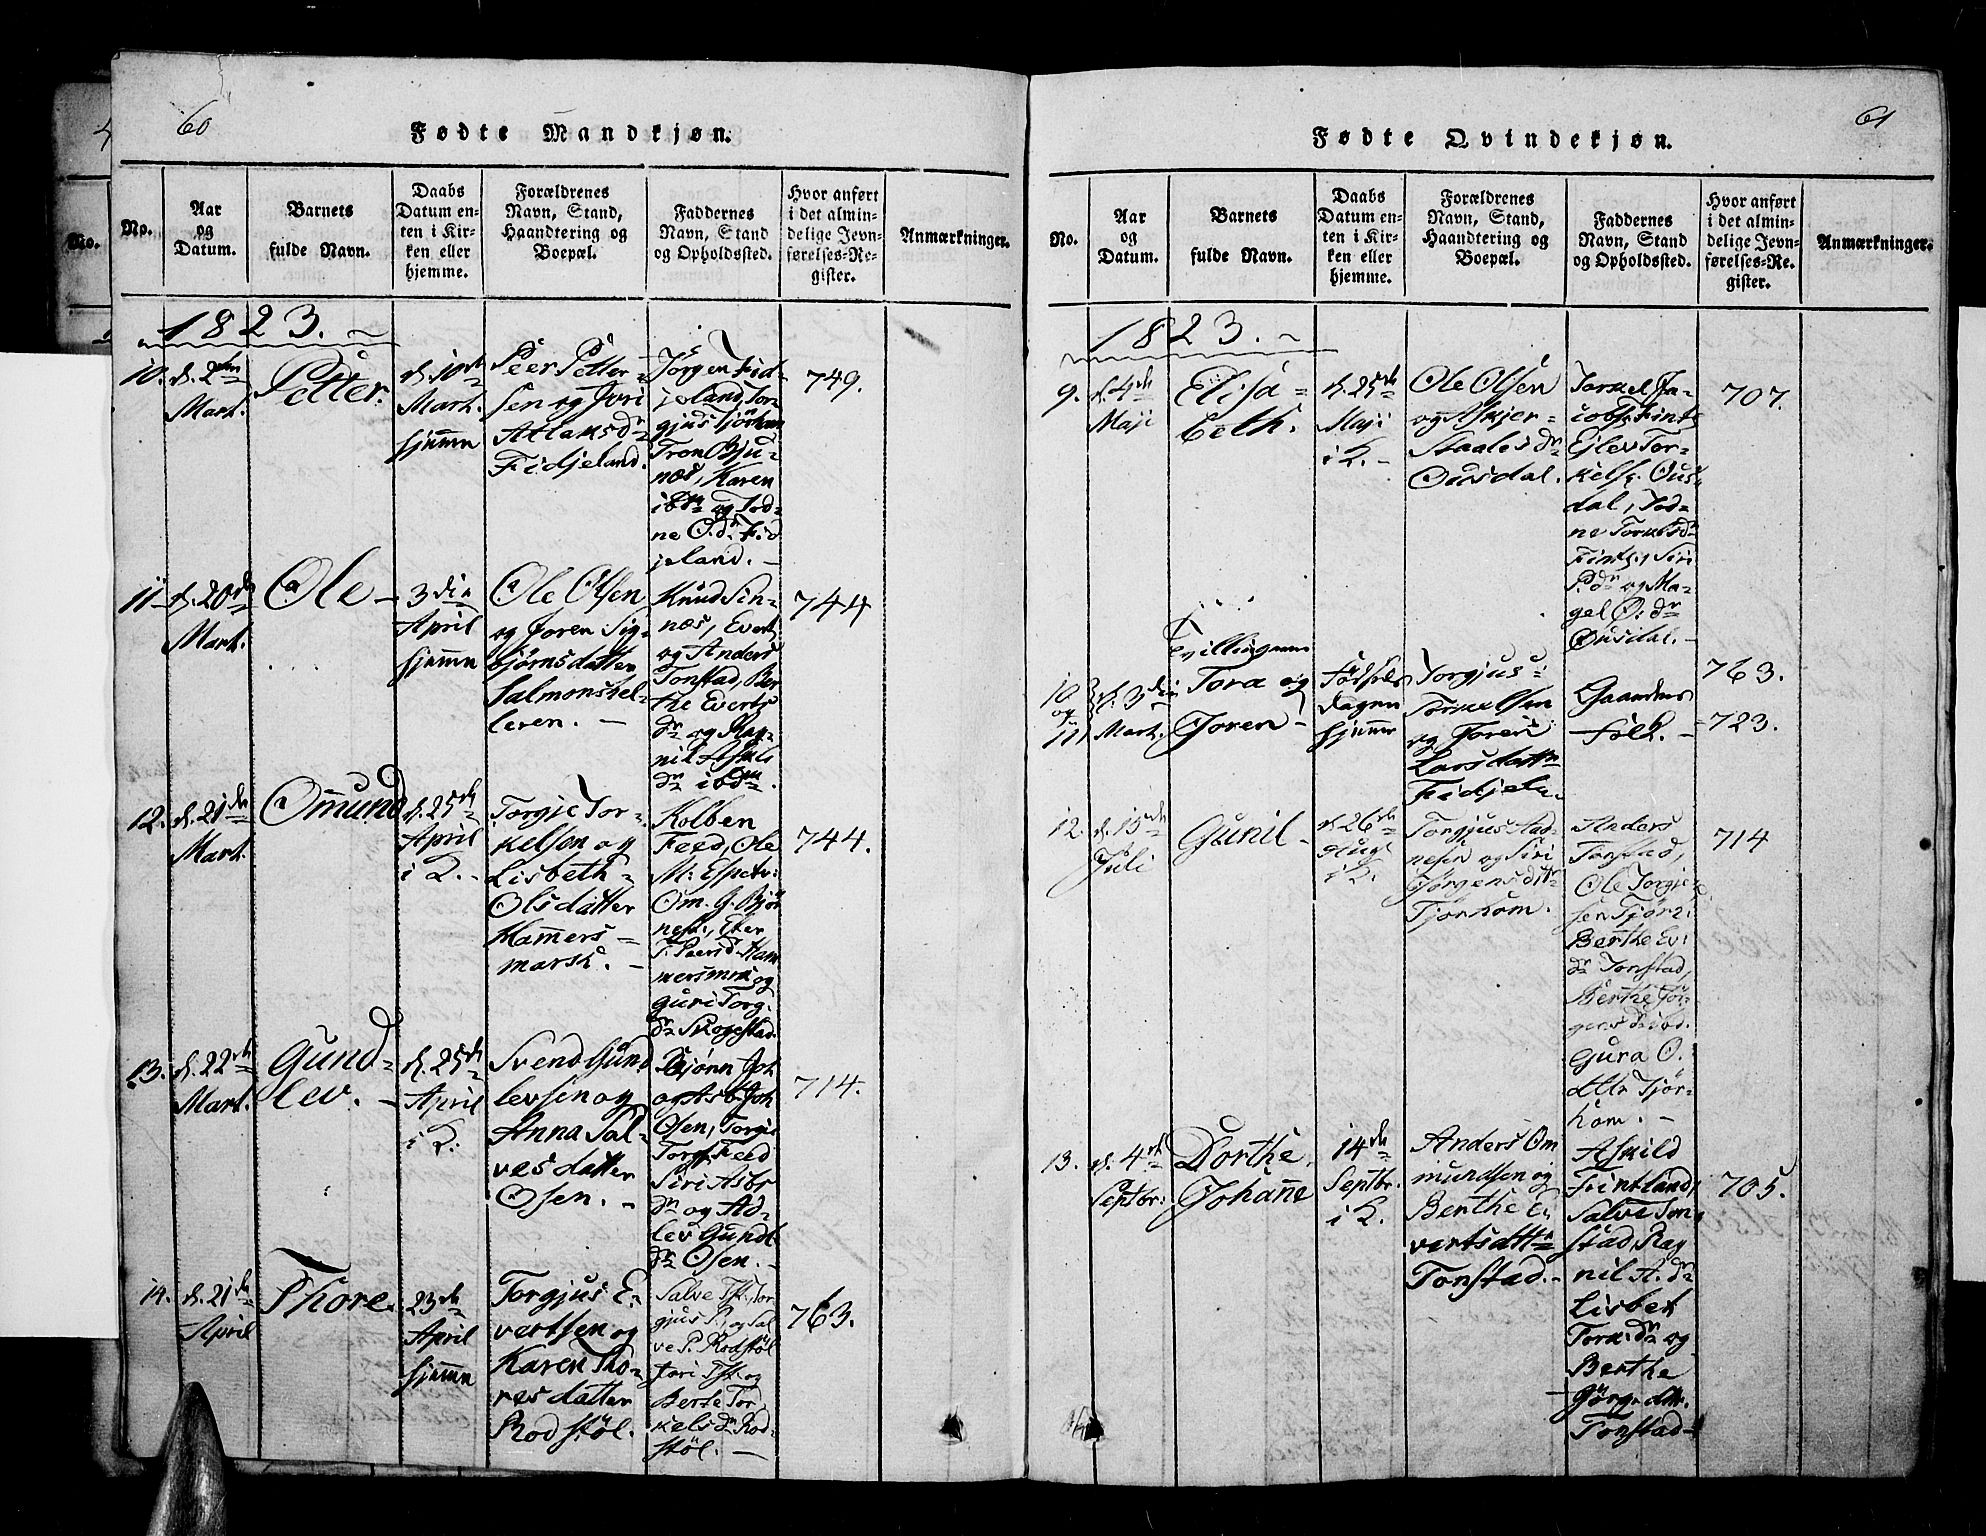 60
Fødte Mandkjøn.
No.
Aar
og
Datum.
Barnets
fulde Navn.
Daabs
Datum en-
ten i Kir-
ken eller
hjemme.
Forældrenes
Navn, Stand,
Haandtering og
Boepæl.
Faddernes
Navn, Stand
og Opholdssted.
Hvor anført
i det almin-
delige Jevn-
førelses-Re-
gister.
Anmærkninger.
1823.
10.
d. 2den
Mart.
Petter.
d. 10de
Mart.
hjemme
Peer Petter-
sen og Jori
Atlaksdr
Fidjeland.
Jørgen Fid-
jeland, Tor-
gjus Tjørhom
Tron Bju-
næs, Karen
ibdm og Tod-
ne O.dr Fid
jeland. -
749.
11
d. 20de
Mart.
Ole -
3die
April
hjemme
Ole Olsen
og Joren Sig-
bjørnsdatter
Salmonshel-
leren. -
Knud Sin-
næs, Evert
og Anders
Tonstad, Ber
the Everts
dr og Rag-
nil Askils
dr ibdm.
744
12.
d. 21de
Mart.
Omund
d. 25de
April
i K. -
Torgje Tor-
kelsen og
Lisbeth
Olsdatter
Hammers-
mark. -
Kolben
Feed, Ole
M. Espetv:
Om. G. Bjør
nest:, Eler
P. Peersd. Ham
mersmrk og
Guri Torg.
dr Skogestad.
744.
13.
d. 22de
Mart.
Gund-
lev. -
d. 25de
April
i K.
Svend Gund
levsen og
Anna Sal-
vesdatter
Osen. -
Bjørn Joh
og Asb Joh
Osen, Torgje
Torgs. Feed
Siri Asbr
dr og Ad-
lev Gundl.
dr Osen. -
714.
14.
d. 21de
April
Thore.
23de
April
hjemme
Torgjus E-
vertsen og
Karen Tho-
resdatter
Rodstøl.
Salve Th, Tor
gjus P. og Sal
ve P. Rodstøl
Jori Th. og
Berte Tor
kelsdr Rod-
støl. -
763.
61
Fødte Qvindekjøn.
No.
Aar
og
Datum.
Barnets
fulde Navn.
Daabs
Datum en-
ten i Kir-
ken eller
hjemme.
Forældrenes
Navn, Stand,
Haandtering og
Boepæl.
Faddernes
Navn, Stand
og Opholdssted.
Hvor anført
i det almin-
delige Jevn-
førelses-Re-
gister.
Anmærkninger.
1823. -
9.
d. 4de
Maji
Elisa-
beth.
d. 25de
Maji
i K. -
Ole Olsen
og Askjer-
Staalesdr
Ousdal.
Torkel Ja-
cobs. Fintl
Ejlev Tor-
kelss. Ous-
dal, Tod-
ne Torkelsd
Fintl, Siri
P.dr og Ma-
gel O. dr
Ousdal. -
707.
10
og
11
d. 3die
Mart.
Tvillingerne
Tora og
Joren -
Fødsels
dagen
hjemme
Torgjus
Torkelsen
og Joren
Larsdattr
Fidjela.
Gaardens
Folk. -
763.
723.
12.
d. 15de
Juli
Gunil -
d. 26de
Aug.
i K.
Torgjus Aad-
nesen og Siri
Jørgensdtr
Tjørhom.
Anders
Tonstad,
Ole Torgje-
sen Tjørh.
Berthe Ev:
dr Tonstad,
Berthe Jør-
gensd. ibd.
Gura O.
dttr Tjør-
hom. -
714
13.
d. 4de
Septbr:
Dorthe
Johanne
14de
Septbr.
i K.
Anders Om
mundsen og
Berthe E-
vertsdattr
Tonstad. -
Askild
Fintland,
Salve Ton-
stad, Rag
nil A. dr
Lisbet
Tork. dr og
Berthe
Jørg. dttr.
Tonstad -
705.